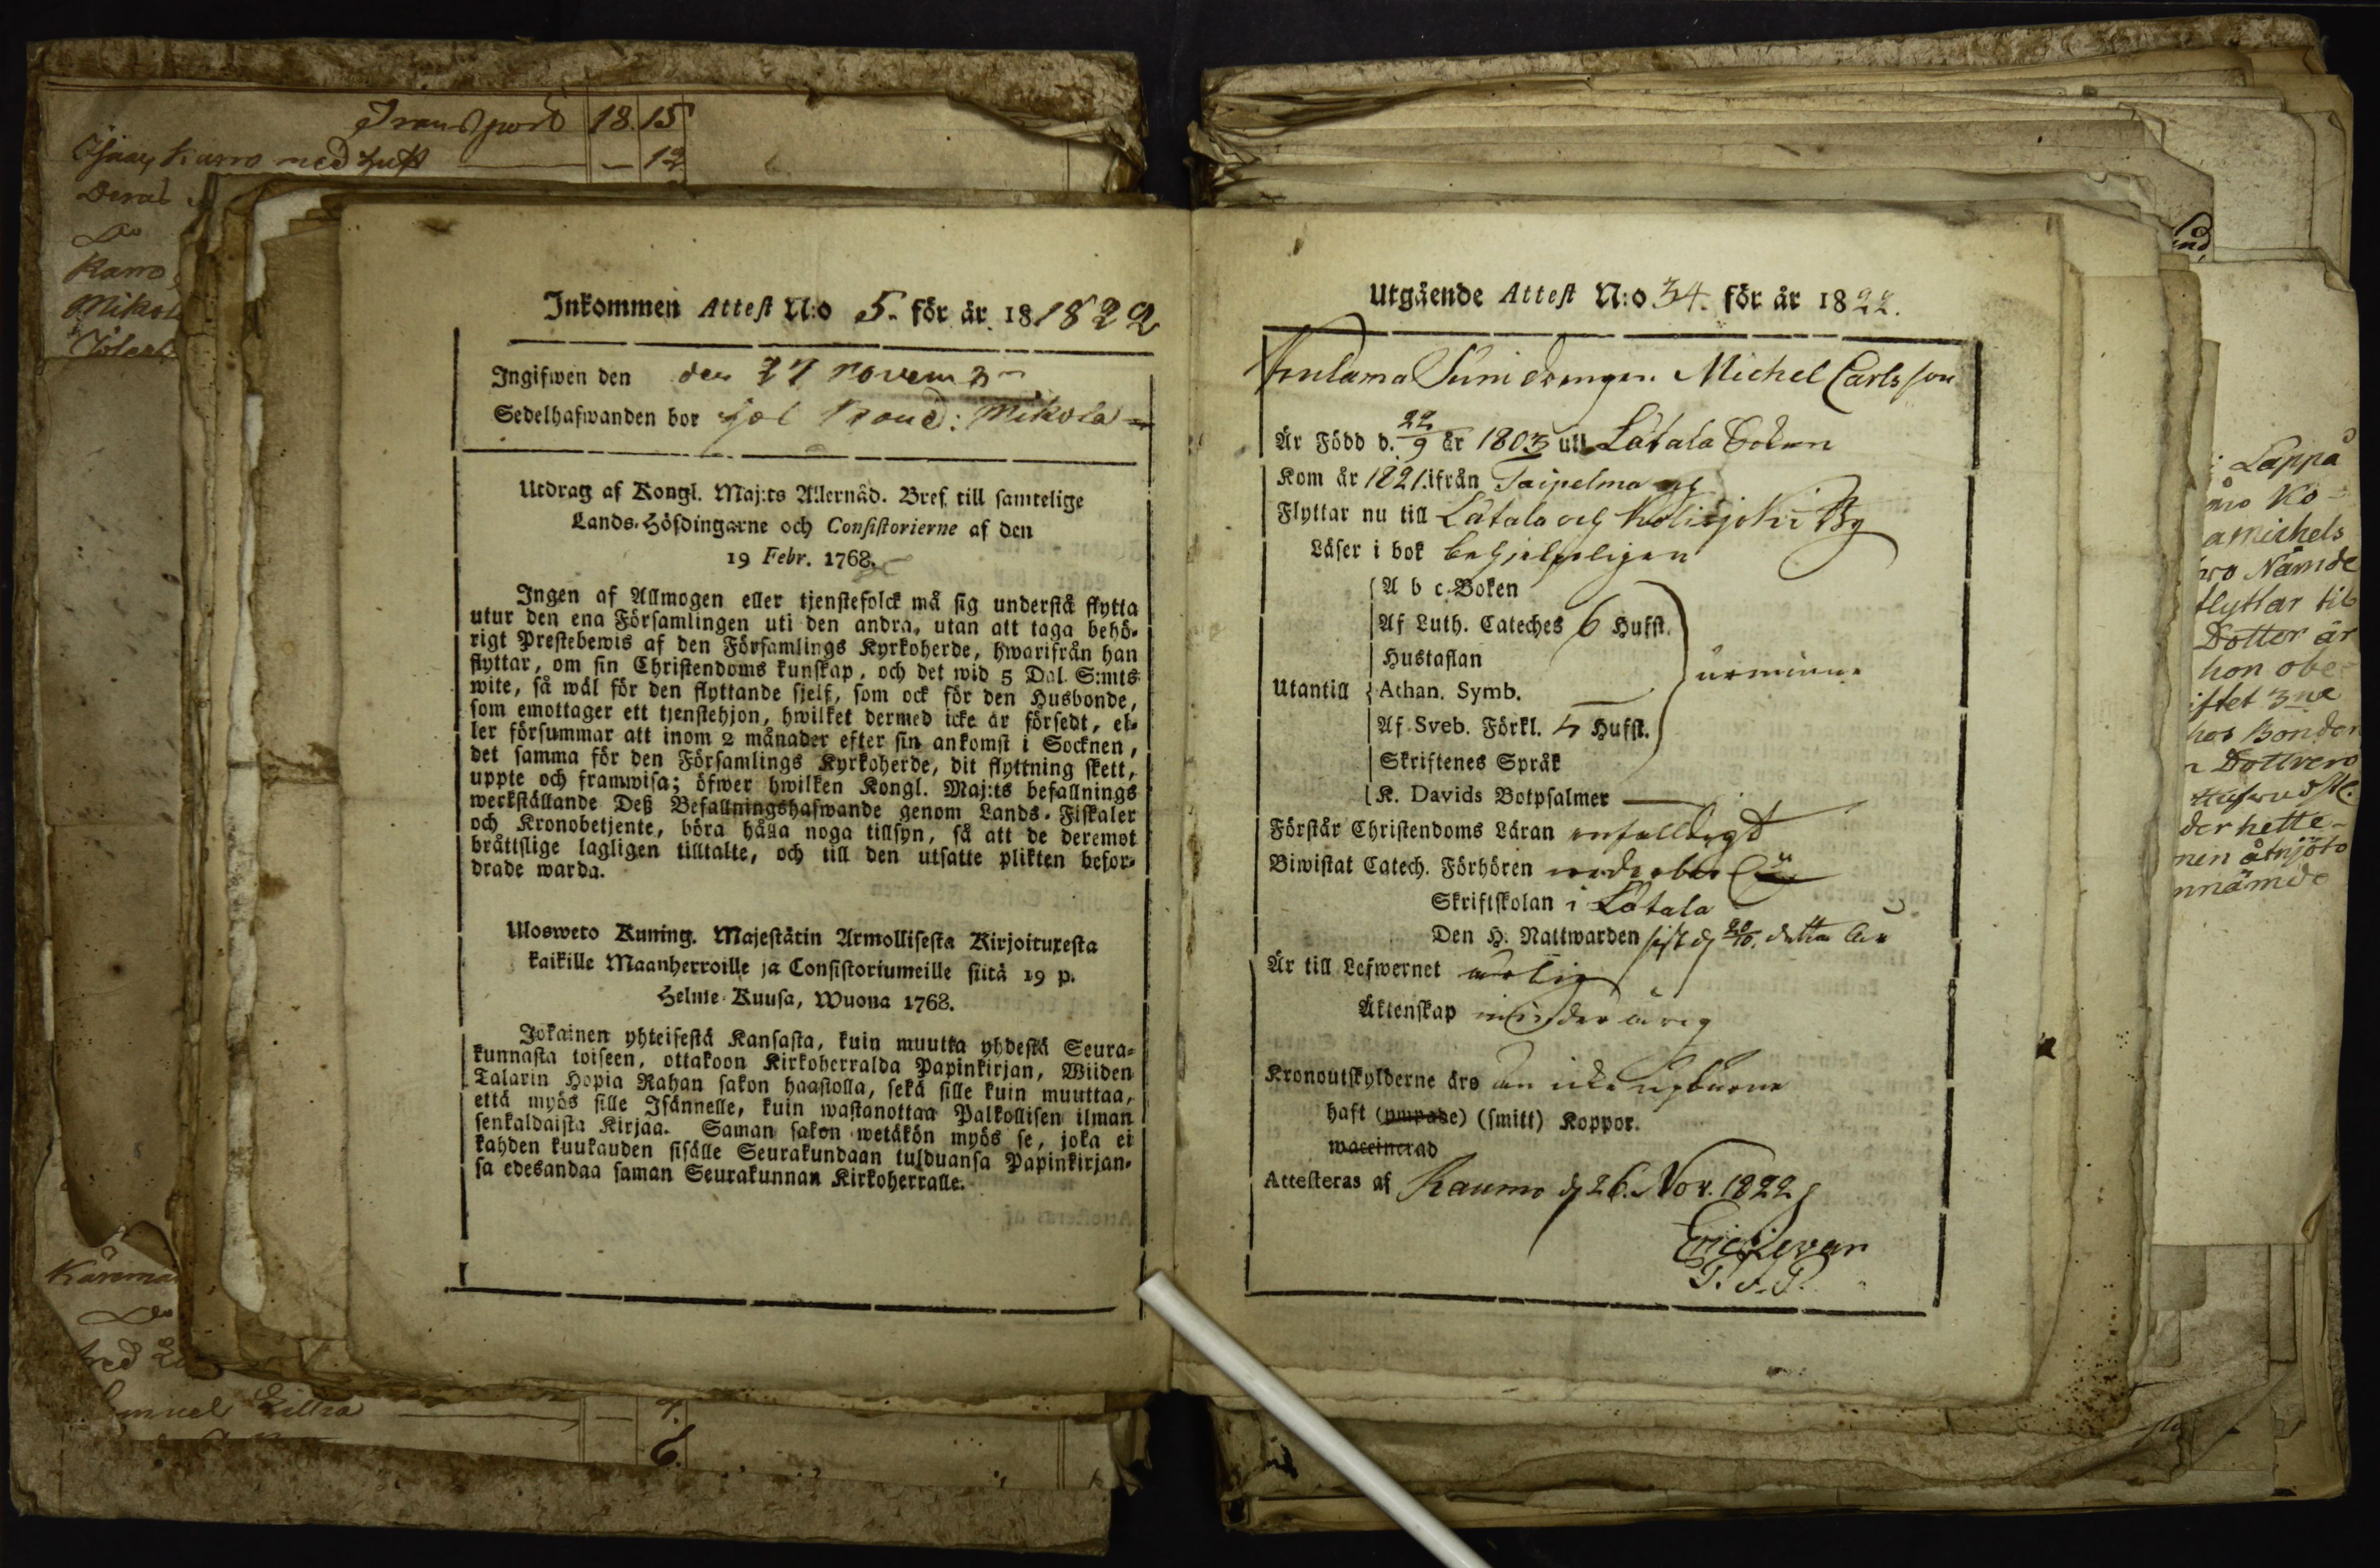 Transport 18.15
Karro med
12
Derad
Do
Karro
Mikol
Inkommen Attest N:o 5. för år 181822
Ingifwen den den 27 novem
Sedelhafwanden bor Mikola
Utdrag af Kongl. Maj:ts Allernåd. Bref till samtelige
Lands-Höfdingarne och Consistorierne af den
19 Febr. 1768.
Ingen af Allmogen eller tjenstefolck må sig understå flytta
utur den ena Församlingen uti den andra, utan att taga behö-
rigt Prestebewis af den Församlings Kyrkoherde, hwarifrån han
flyttar, om sin Christendoms kunskap, och det wid 5 Dal. S:mts
wite, så wäl för den flyttande sjelf, som ock för den Husbonde,
som emottager ett tjenstehjon, hwilket dermed icke är försedt, el-
ler försummar att inom 2 månader efter sin ankomst i Socknen,
det samma för den Församlings Kyrkoherde, dit flyttning skett,
uppte och framwisa; öfwer hwilken Kongl. Maj:ts befallnings
werkställande Deß Befallningshafwande genom Lands-Fiskaler
och Kronobetjente, böra hålla noga tillsyn, så att de deremot
bråttslige lagligen tilltalte, och till den utsatte plikten befor-
drade warda.
Ulosweto Kuning. Majestätin Armollisesta Kirjoituxesta
kaikille Maanherroille ja Consistoriumeille siitä 19 p.
Helme-Kuusa, Wuona 1768.
Jokainen yhteisestä Kansasta, kuin muutta yhdestä Seura-
kunnasta toiseen, ottakoon Kirkoherralda Papinkirjan, Wiiden
Talarin Hopia Rahan sakon haastolla, sekä sille kuin muuttaa,
että myös sille Isännelle, kuin wastanottaa Palkollisen ilman
senkaldaista Kirjaa. Saman sakon wetäkön myös se, joka ei
kahden kuukauden sisälle Seurakundaan tulduansa Papinkirjan-
sa edesandaa saman Seurakunnan Kirkoherralle.
Do
Lillra
7.
6.
Utgående Attest N:o 34. för år 1822.
drengen Michel Carlsson
Är Född d. 22/9 år 1803 uti Låtala Sokn
Kom år 1821 ifrån Taipelma
Flyttar nu till Låtala och Kolisjoki By
Läser i bok behjelpeligen
A b c-Boken
Af Luth. Cateches 6 Hufst.
Hustaflan
Utantill Athan. Symb.
Af Sveb. Förkl. 5 Hufst.
Skriftenes Språk
K. Davids Botpsalmer
Förstår Christendoms Läran enfalldigt
Biwistat Catech. Förhören
Skriftskolan i Låtala
Den H. Nattwarden sist d. detta år
Är till Lefwernet ärlig
Äktenskap minderårig
Kronoutskylderne äro än icke upburne
haft (ympade) (smitt) Koppor.
waccinerad
Attesteras af Raumo d. 26. Nov. 1822
Eric Levan
Lappå
Ko-
amichels
Nämde
flyttar til
Dotter är
hon obe-
iftet 3ne
hos Bonden
Dottrero
der hette-
nen åtnjöto
nnämde